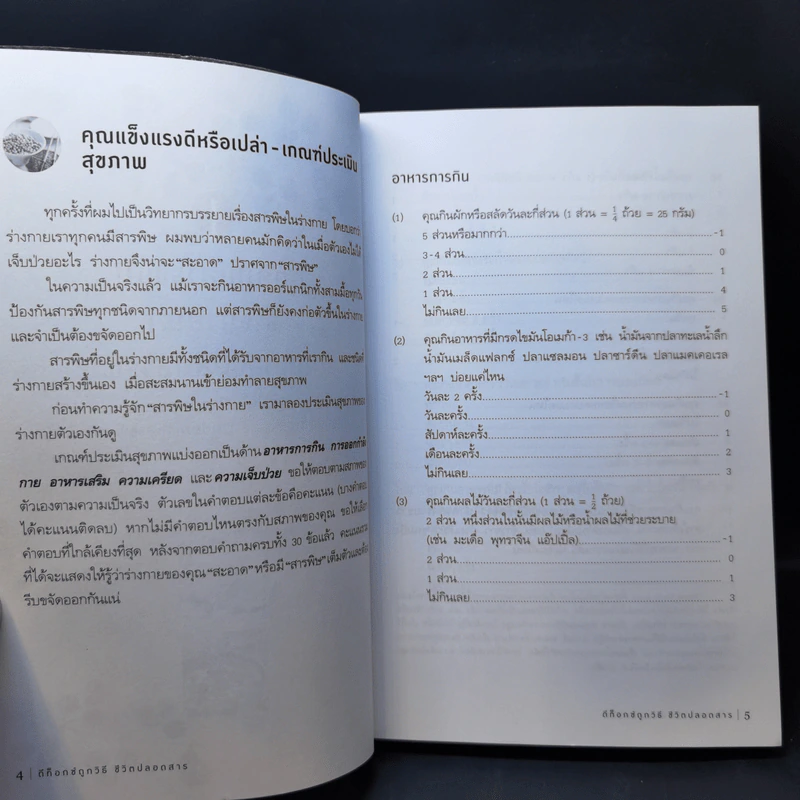 คุณแข็งแรงดีหรือเปล่า - เกณฑ์ประเมิน
สุขภาพ
ทุกครั้งที่ผมไปเป็นวิทยากรบรรยายเรื่องสารพิษในร่างกาย โดยบอกว่า
ร่างกายเราทุกคนมีสารพิษ ผมพบว่าหลายคนมักคิดว่าในเมื่อตัวเองไม่ได้
เจ็บป่วยอะไร ร่างกายจึงน่าจะ“สะอาด” ปราศจาก“สารพิษ”
ในความเป็นจริงแล้ว แม้เราจะกินอาหารออร์แกนิกทั้งสามมื้อทุกวัน
ป้องกันสารพิษทุกชนิดจากภายนอก แต่สารพิษก็ยังคงก่อตัวขึ้นในร่างกาย
และจำเป็นต้องขจัดออกไป
สารพิษที่อยู่ในร่างกายมีทั้งชนิดที่ได้รับจากอาหารที่เรากิน และชนิดที่
ร่างกายสร้างขึ้นเอง เมื่อสะสมนานเข้าย่อมทำลายสุขภาพ
ก่อนทำความรู้จัก“สารพิษในร่างกาย” เรามาลองประเมินสุขภาพของ
ร่างกายตัวเองกันดู
เกณฑ์ประเมินสุขภาพแบ่งออกเป็นด้านอาหารการกิน การออกกำลัง
กาย อาหารเสริม ความเครียด และความเจ็บป่วย ขอให้ตอบตามสภาพของ
ตัวเองตามความเป็นจริง ตัวเลขในคำตอบแต่ละข้อคือคะแนน (บางคำตอบ
ได้คะแนนติดลบ) หากไม่มีคำตอบไหนตรงกับสภาพของคุณ ขอให้เลือก
คำตอบที่ใกล้เคียงที่สุด หลังจากตอบคำถามครบทั้ง 30 ข้อแล้ว คะแนนรวม
ที่ได้จะแสดงให้รู้ว่าร่างกายของคุณ“สะอาด”หรือมี “สารพิษ”เต็มตัวและต้อง
รีบขจัดออกกันแน่
4 | ดีท็อกซ์ถูกวิธี ชีวิตปลอดสาร
อาหารการกิน
(1) คุณกินผักหรือสลัดวันละกี่ส่วน (1 ส่วน = 1/4 ถ้วย = 25 กรัม)
5 ส่วนหรือมากกว่า -1
3-4 ส่วน 0
2 ส่วน 1
1 ส่วน 4
ไม่กินเลย 5
(2) คุณกินอาหารที่มีกรดไขมันโอเมก้า-3 เช่น น้ำมันจากปลาทะเลน้ำลึก
น้ำมันเมล็ดแฟลกซ์ ปลาแซลมอน ปลาซาร์ดีน ปลาแมคเคอเรล
ฯลฯ บ่อยแค่ไหน
วันละ 2 ครั้ง -1
วันละครั้ง 0
สัปดาห์ละครั้ง 1
เดือนละครั้ง 2
ไม่กินเลย 3
(3) คุณกินผลไม้วันละกี่ส่วน (1 ส่วน = 1/2 ถ้วย)
2 ส่วน หนึ่งส่วนในนั้นมีผลไม้หรือน้ำผลไม้ที่ช่วยระบาย
(เช่น มะเดื่อ พุทราจีน แอ๊ปเปิ้ล) -1
2 ส่วน 0
1 ส่วน 1
ไม่กินเลย 3
ดีท็อกซ์ถูกวิธี ชีวิตปลอดสาร | 5